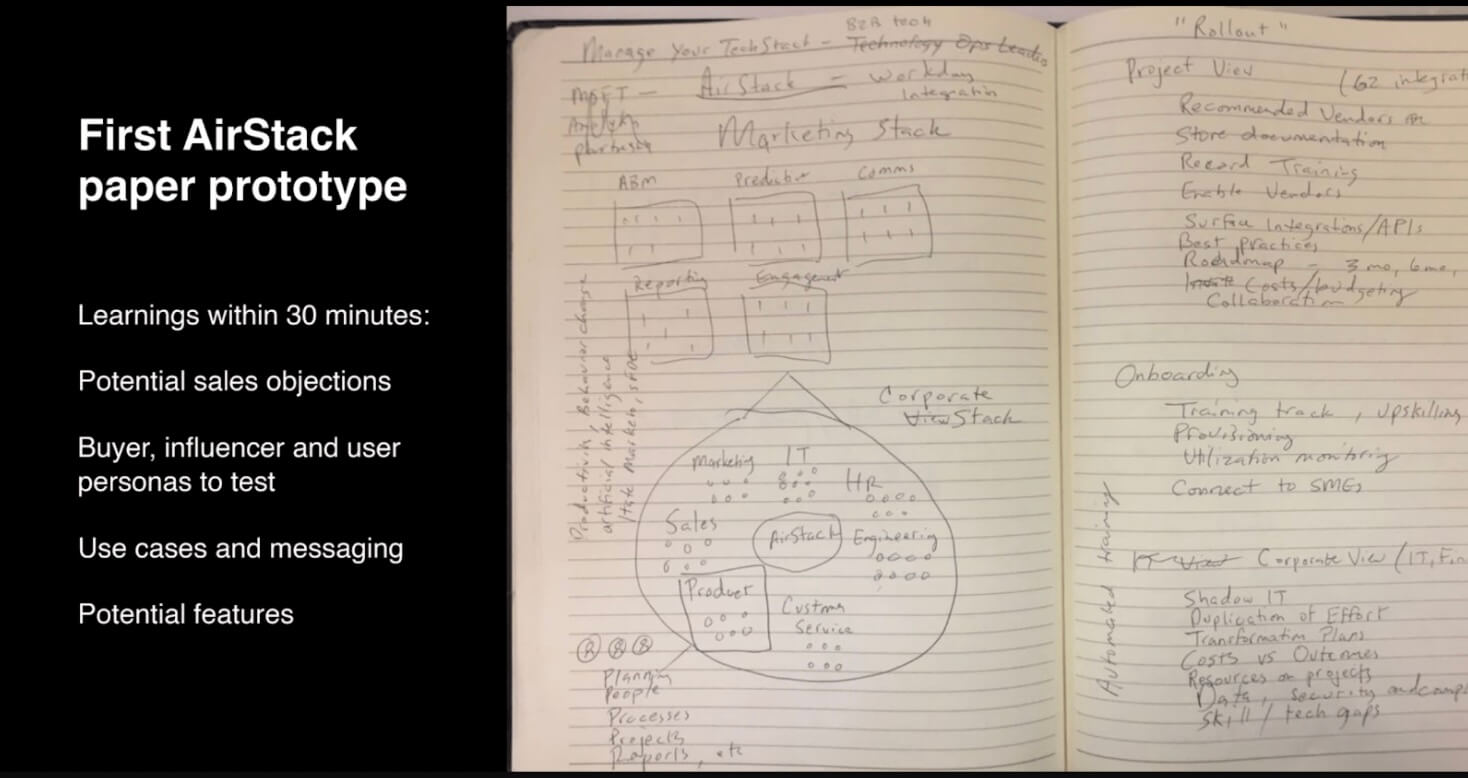 First AirStack
paper prototype
Learnings within 30 minutes:
Potential sales objections
Buyer, influencer and user
personas to test
Use cases and messaging
Potential features
B2B tech
Manage Your TechStack - Technology Ops Leade
MSFT - AirStack = Workday
Integration
Marketing Stack
ABM
Predictive
Comms
Reporting
Engagement
Productivity, Behavior change
artificial intelligence
Marketo, SFDC
Corporate
View Stack
Marketing
IT
HR
Sales
AirStack
Engineering
Product
Customer
Service
Planning
People
Processes
Projects
Reports, etc
"Rollout"
Project View (G2 integrat
Recommended Vendors
Store documentation
Record Training
Enable Vendors
Surface Integrations/APIs
Best practices
Roadmap - 3 mo, 6 mo,
Costs/budgeting
Collaboration
Onboarding
Training track, upskilling
Provisioning
Utilization monitoring
Connect to SMEs
Automated training
IT View Corporate View (IT, Fin
Shadow IT
Duplication of Effort
Transformation Plans
Costs vs Outcomes
Resources on projects
Data, security and comp
Skill/tech gaps